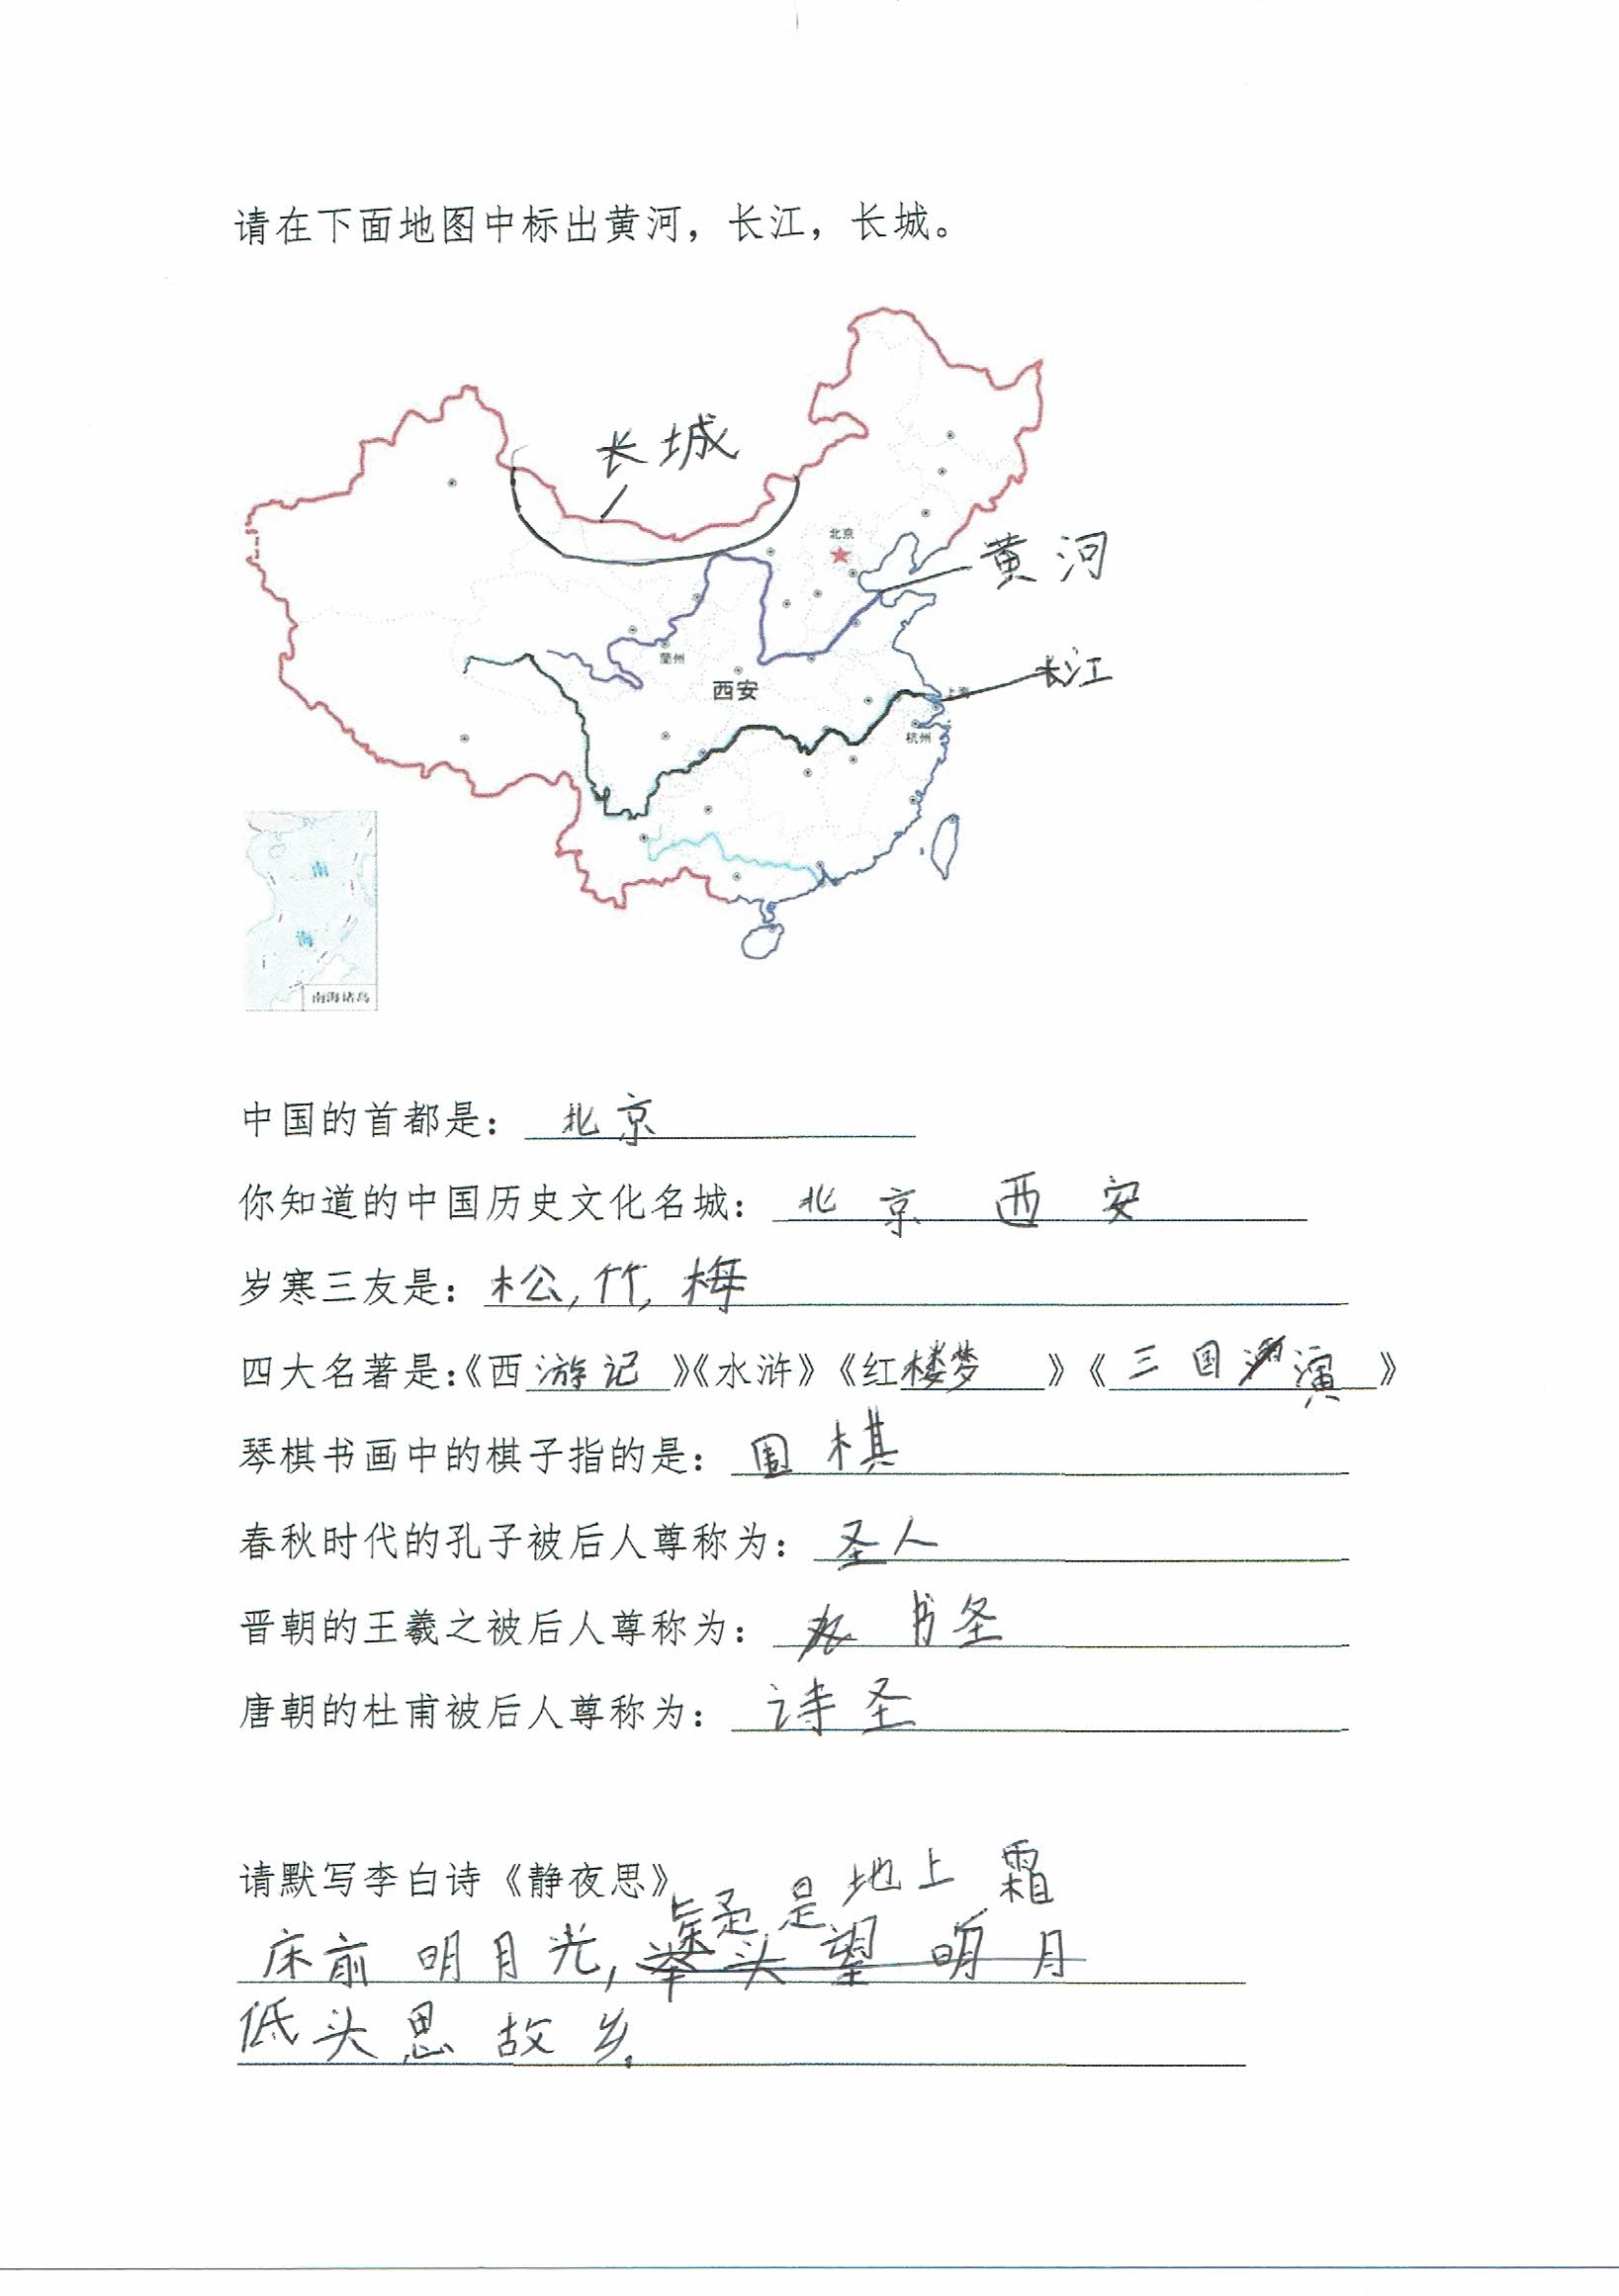 请在下面地图中标出黄河，长江，长城。
长城
北京
黄河
蘭州
西安
长江
上海
杭州
南
海
南海诸岛
中国的首都是：北京
你知道的中国历史文化名城：北京 西安
岁寒三友是：松，竹，梅
四大名著是：《西游记》《水浒》《红楼梦》《三国演》
琴棋书画中的棋子指的是：围棋
春秋时代的孔子被后人尊称为：圣人
晋朝的王羲之被后人尊称为：书圣
唐朝的杜甫被后人尊称为：诗圣
请默写李白诗《静夜思》
疑是地上霜
床前明月光，举头望明月
低头思故乡。